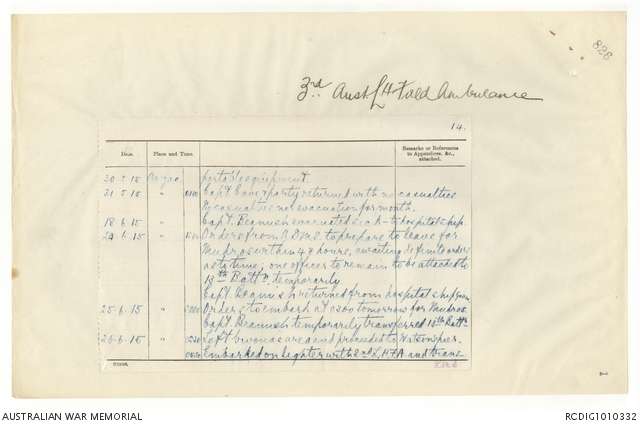 828
3rd Aust L H Field Ambulance
14.
Date. Place and Time. Remarks or References to Appendices, &c., attached.
20.5.15 portable equipment.
21.5.15 " Capt. & party returned with no casualties
casualties nor evacuation for month.
18.6.15 " Capt. evacuated sick to hospital ship.
24.6.15 " Orders from A.D.M.S. to prepare to leave for
Mudros within 48 hours, awaiting definite orders
as to time, one officer to remain to be attached to
Battn. temporarily
Capt. returned from hospital ship
25.6.15 " Orders to embark at 0300 tomorrow for Mudros
Capt. temporarily transferred Battn.
26.6.15 " Left bivouac area and proceeded to Watsons pier.
Embarked on lighter with 2nd L.H.F.A and
AUSTRALIAN WAR MEMORIAL
RCDIG1010332